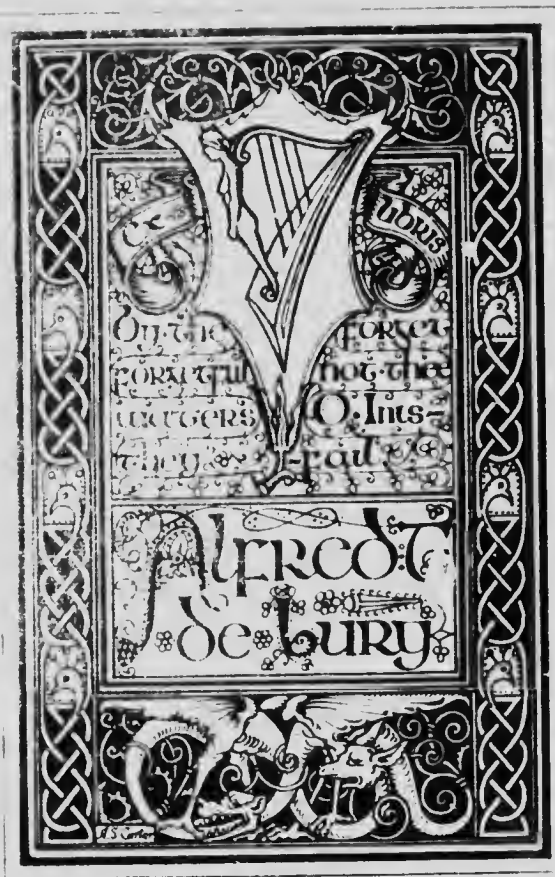 Ex
Libris
On·the
forgetful
waters
they
forget
not·thee
O·Inis-
-fail
Alfred·T
de·Lury
A S Carter